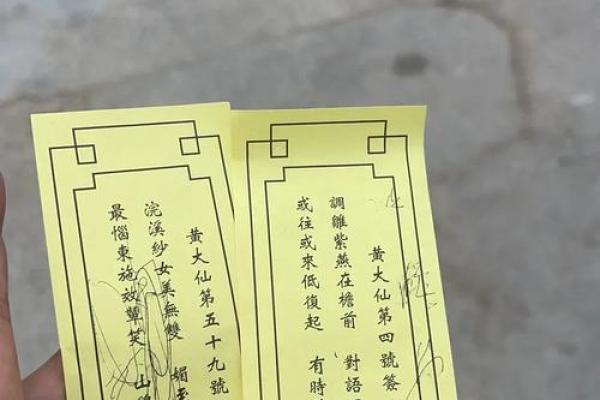 黃大仙第五十九號
浣溪紗女美無雙 媚
最惱東施效顰笑 山
黃大仙第四號簽
調雛紫燕在檐前 對語
或往或來低復起 有時